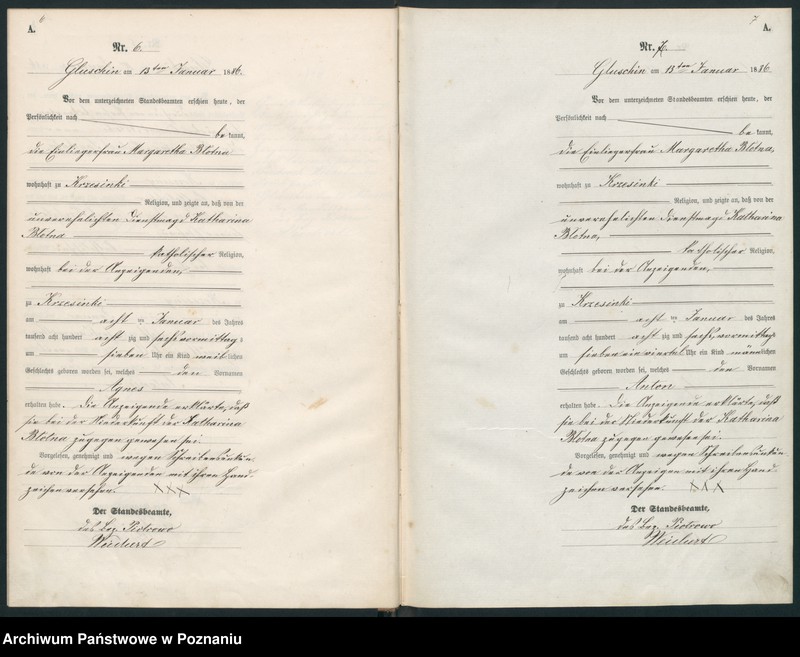 6
A.
Nr. 6.
Gluschin am 13ten Januar 1886.
Vor dem unterzeichneten Standesbeamten erschien heute, der
Persönlichkeit nach
be kannt,
die Einliegerfrau Margaretha Blotna
wohnhaft zu Krzesinki
Religion, und zeigte an, daß von der
unverehelichten Dienstmagd Katharina
Blotna
katholischer Religion,
wohnhaft bei der Anzeigenden,
zu Krzesinki
am acht ten Januar des Jahres
tausend acht hundert acht zig und sechs vormittags
um sieben Uhr ein Kind weiblichen
Geschlechts geboren worden sei, welches den Vornamen
Agnes
erhalten habe. Die Anzeigende erklärte, daß
sie bei der Niederkunft der Katharina
Blotna zugegen gewesen sei.
Vorgelesen, genehmigt und wegen Schreibensunkun-
de von der Anzeigenden mit ihren Hand-
zeichen versehen. XXX
Der Standesbeamte,
des Bez. Piotrowo
7
A.
Nr. 7.
Gluschin am 13ten Januar 1886.
Vor dem unterzeichneten Standesbeamten erschien heute, der
Persönlichkeit nach
be kannt,
die Einliegerfrau Margaretha Blotna,
wohnhaft zu Krzesinki
Religion, und zeigte an, daß von der
unverehelichten Dienstmagd Katharina
Blotna,
katholischer Religion,
wohnhaft bei der Anzeigenden,
zu Krzesinki
am acht ten Januar des Jahres
tausend acht hundert acht zig und sechs, vormittags
um sieben ein viertel Uhr ein Kind männlichen
Geschlechts geboren worden sei, welches den Vornamen
Anton
erhalten habe. Die Anzeigende erklärte, daß
sie bei der Niederkunft der Katharina
Blotna zugegen gewesen sei.
Vorgelesen, genehmigt und wegen Schreibensunkun-
de von der Anzeigen mit ihren Hand-
zeichen versehen. XXX
Der Standesbeamte,
des Bez. Piotrowo
Archiwum Państwowe w Poznaniu